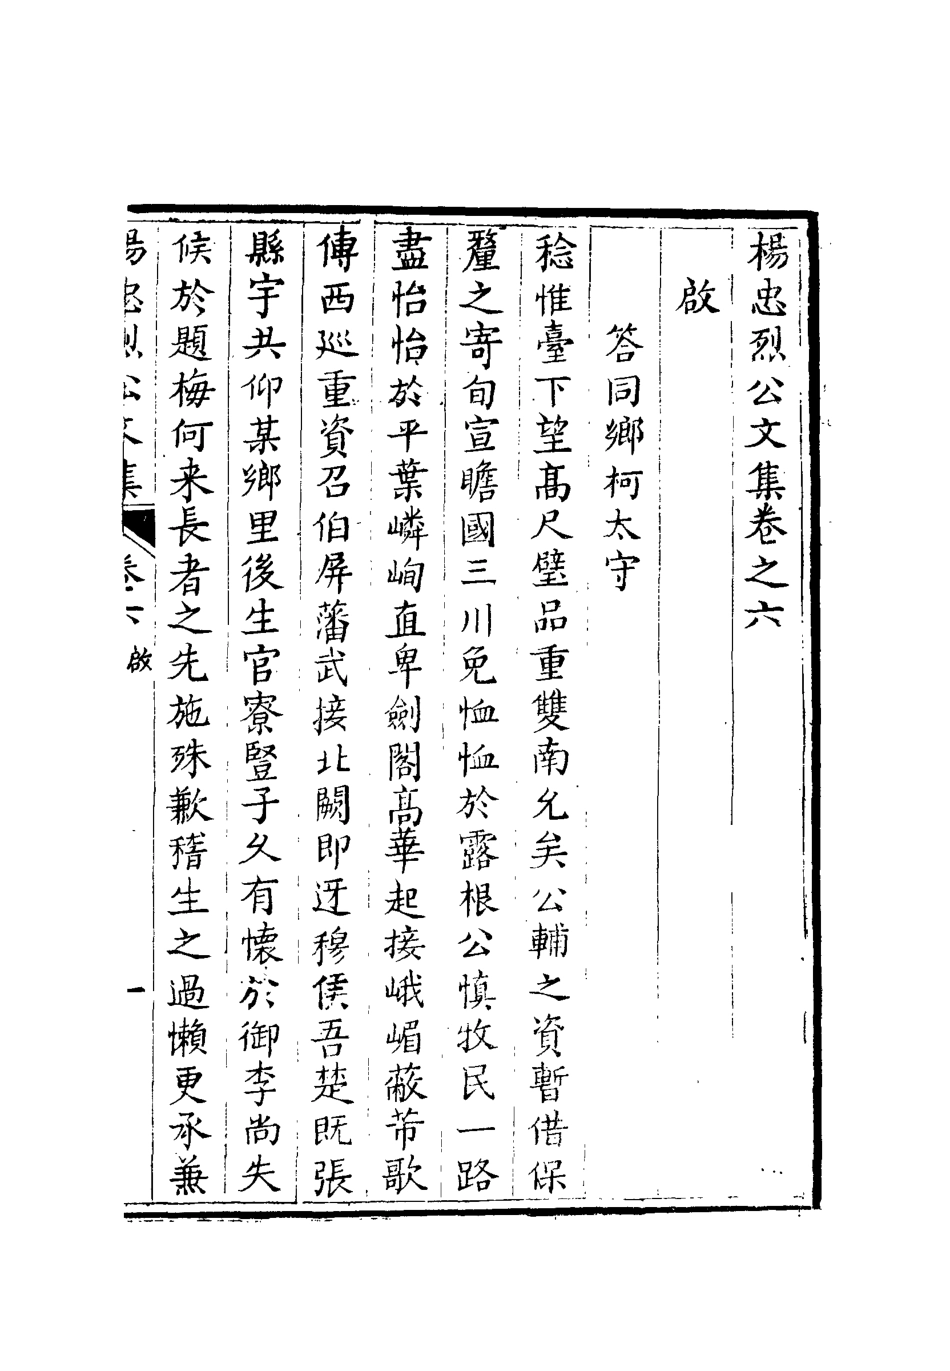 楊忠烈公文集卷之六
啟
答同鄉柯太守
稔惟臺下望髙尺璧品重雙南允矣公輔之資暫借保
釐之寄旬宣瞻國三川免恤恤於露根公慎牧民一路
盡怡怡於平葉嶙峋直卑劍閣髙華起接峨嵋蔽芾歌
傳西廵重資召伯屏藩武接北闕即迓穆侯吾楚既張
縣宇共仰某鄉里後生官寮豎子久有懐於御李尚失
候於題梅何来長者之先施殊歉稽生之過懶更承兼
楊忠烈公文集 卷六 啟 一